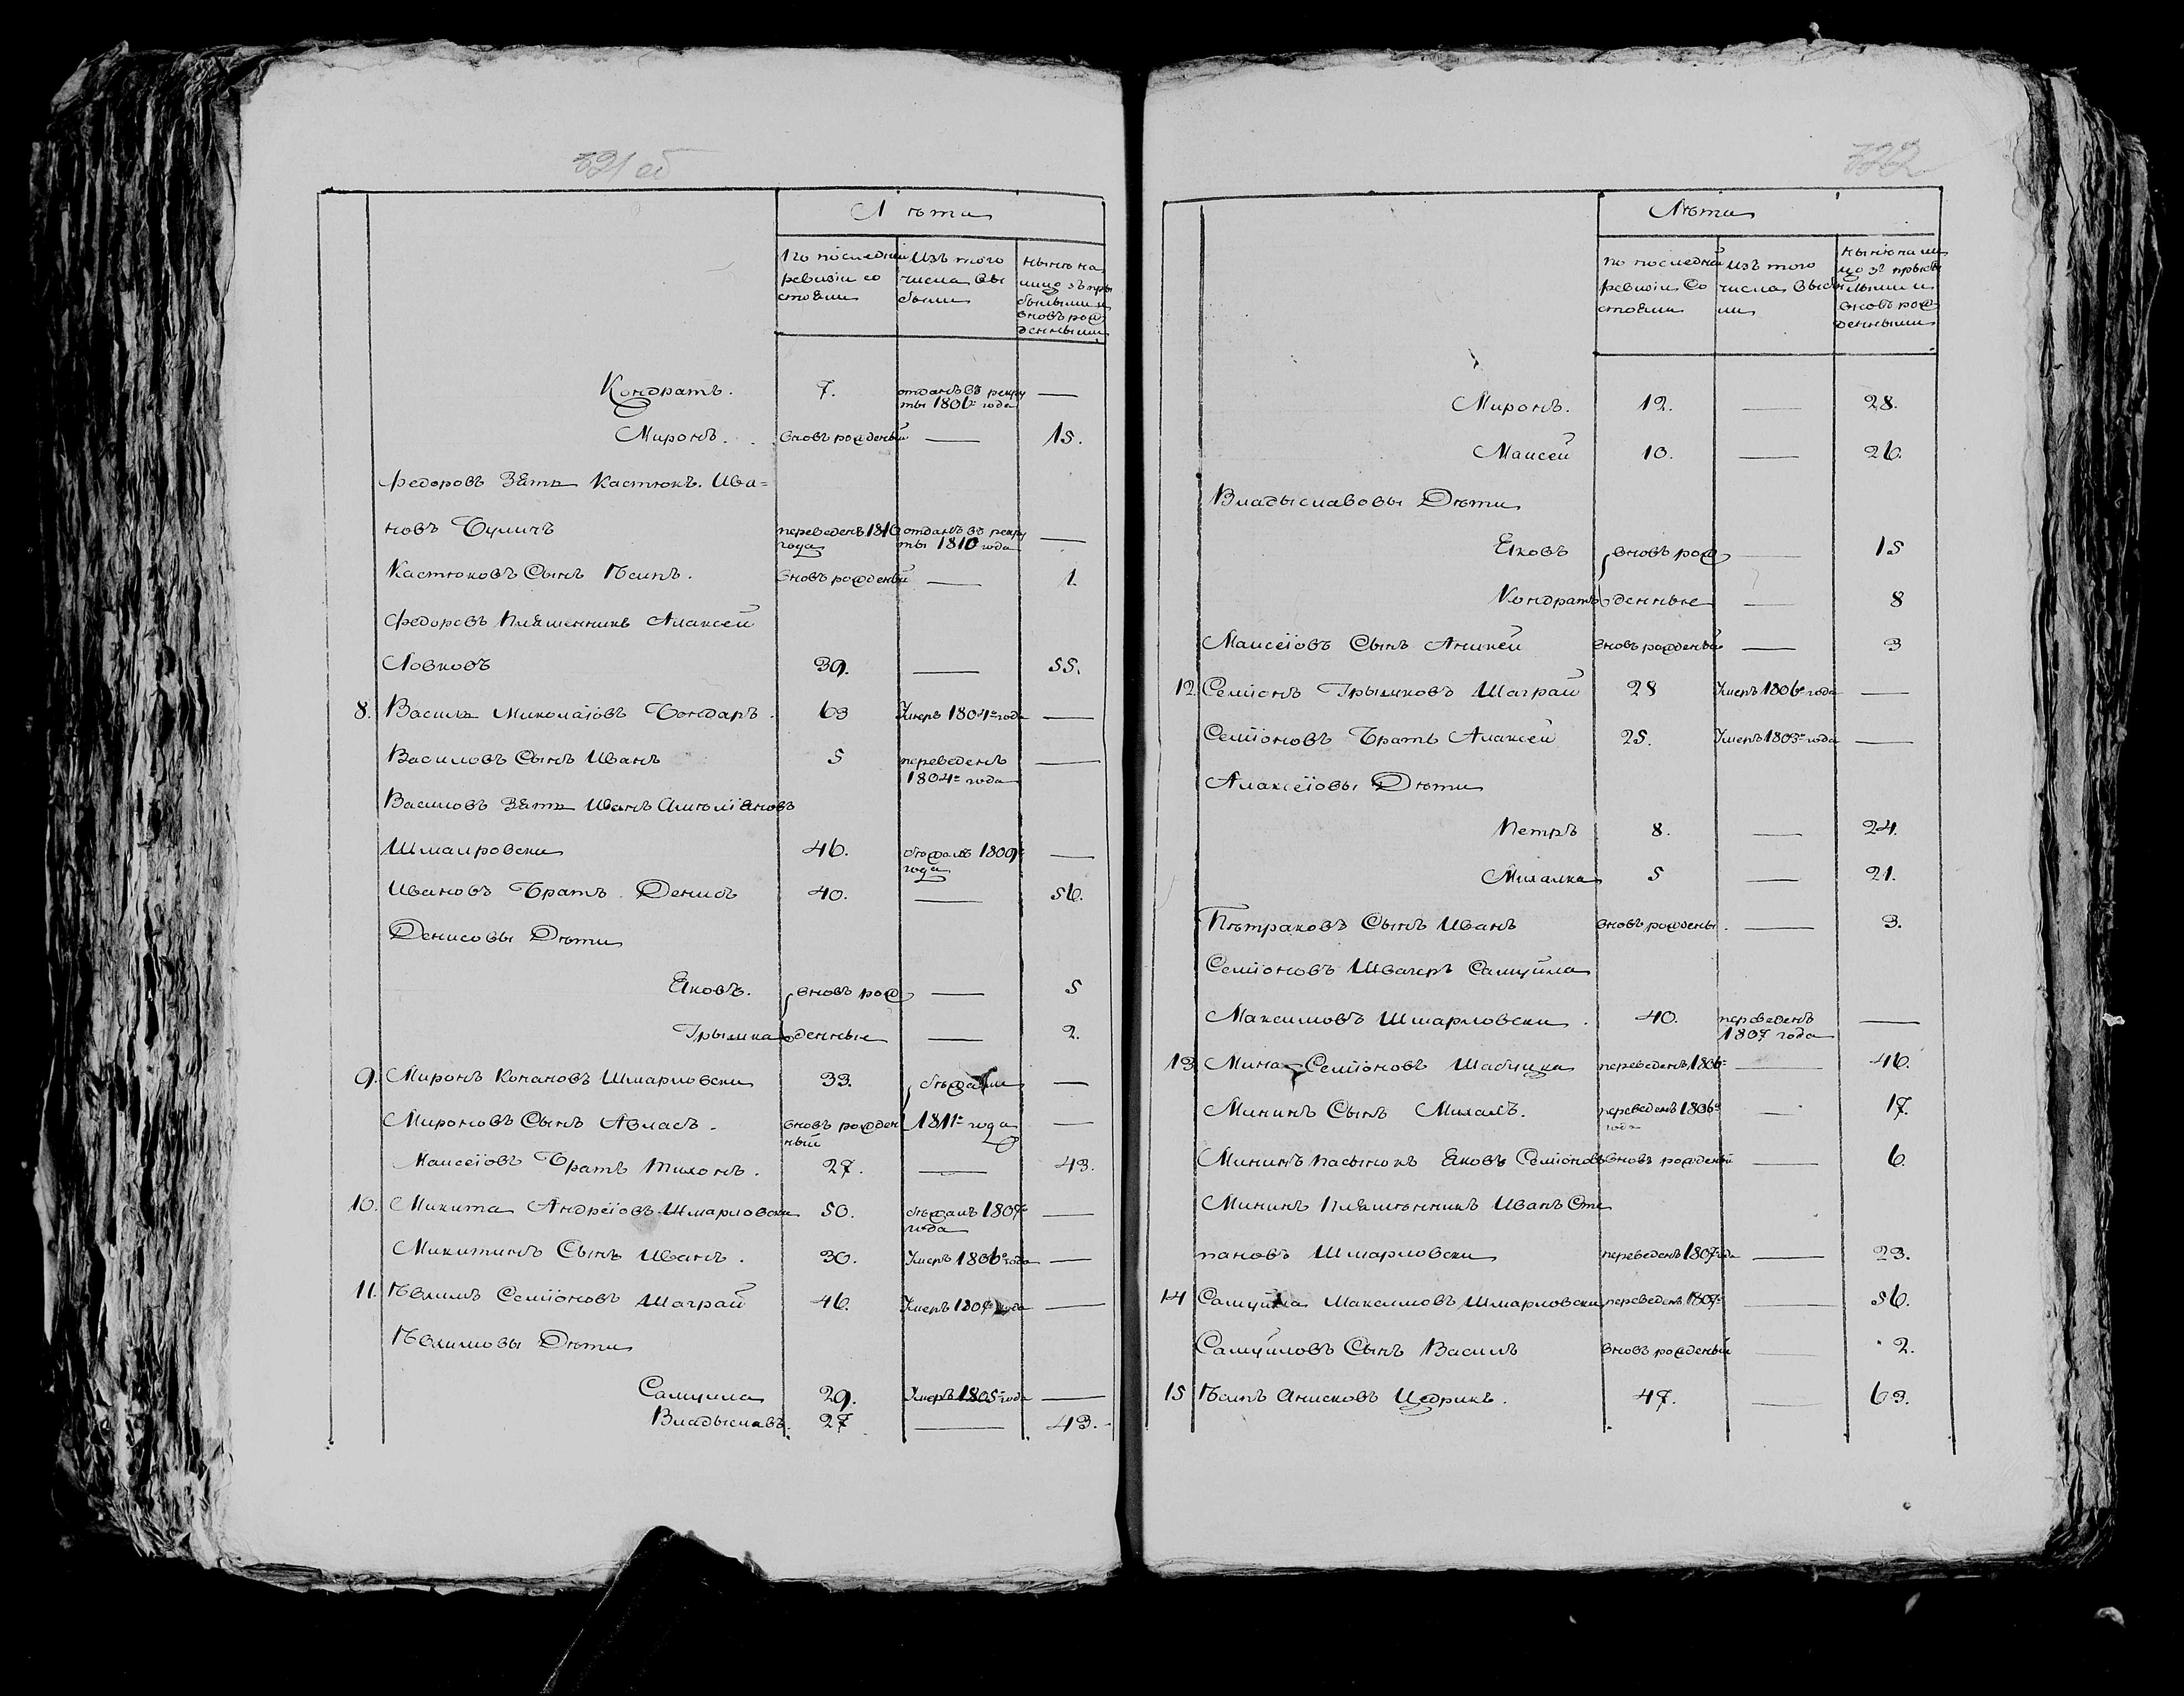 321 об
Лѣта
По последнѣй ревизіи состояли
Изъ того числа выбыли
Нынѣ налицо зъ прыбылыми и вновь рожденными
Кондратъ. 7. отданъ въ рекруты 1806го года —
Миронъ. вновь рожденый — 15.
Федоровъ Зять Кастюкъ Ива=
новъ Буличъ переведенъ 1810 года отданъ въ рекруты 1810 года —
Кастюковъ Сынъ Есипъ. вновь рожденый — 1.
Федоровъ Пляменникъ Алаксей
Ловковъ 39. — 55.
8. Василь Миколаіовъ Бондаръ. 63 Умеръ 1804го года —
Василовъ Сынъ Иванъ 5 переведенъ 1804го года —
Василовъ Зять Иванъ
Шмаировски 46. бѣжалъ 1809го года —
Ивановъ Братъ Денисъ 40. — 56.
Денисовы Дѣти
Яковъ. вновь рож — 5
Грышка денные — 2.
9. Миронъ Конановъ Шмарловски 33. бѣжали —
Мироновъ Сынъ Авласъ. вновь рожденный 1811го года —
Маисеіовъ Братъ Тихонъ. 27. — 43.
10. Микита Андреіовъ Шмарловски 50. бѣжалъ 1807го года —
Микитинъ Сынъ Иванъ. 30. Умеръ 1806го года —
11. Евлимъ Семіоновъ Шаграй 46. Умеръ 1807го года —
Евлимовы Дѣти
Самуила 29. Умеръ 1805го года —
Владыславъ. 27 — 43.
322
Лѣта
по последнѣй ревизіи состояли
изъ того числа выбыли
нынѣ налицо зъ прыбылыми и вновь рожденными
Миронъ. 12. — 28.
Маисей 10. — 26.
Владыславовы Дѣти
Яковъ вновь рож — 15
Кондратъ денные — 8
Маисеіовъ Сынъ Аникей вновь рожденый — 3
12. Семіонъ Грышковъ Шаграй 28 Умеръ 1806го года —
Семіоновъ Братъ Алаксей 25. Умеръ 1803го года —
Алаксеіовы Дѣти
Петръ 8. — 24.
Михалка 5 — 21.
Пѣтраковъ Сынъ Иванъ вновь рождены. — 3.
Семіоновъ Швагеръ Самуйла
Максимовъ Шмарловски. 40. переведенъ 1807 года —
13 Мина Семіоновъ Шабуцка переведенъ 1806го — 46.
Мининъ Сынъ Михалъ. переведенъ 1806го года — 17.
Мининъ пасынокъ Яковъ Семіоновъ вновь рожденый — 6.
Мининъ Пляменникъ Иванъ Сте
пановъ Шмарловски переведенъ 1807 года — 23.
14 Самуйла Максимовъ Шмарловски переведенъ 1807го — 56.
Самуйловъ Сынъ Василь вновь рожденый — 2.
15 Есипъ Анисковъ Цедрикъ. 47. — 63.